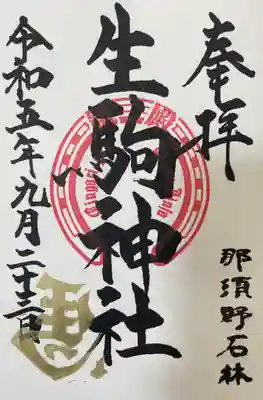 奉拝
那須野石林
生駒神社
令和五年九月二十三日